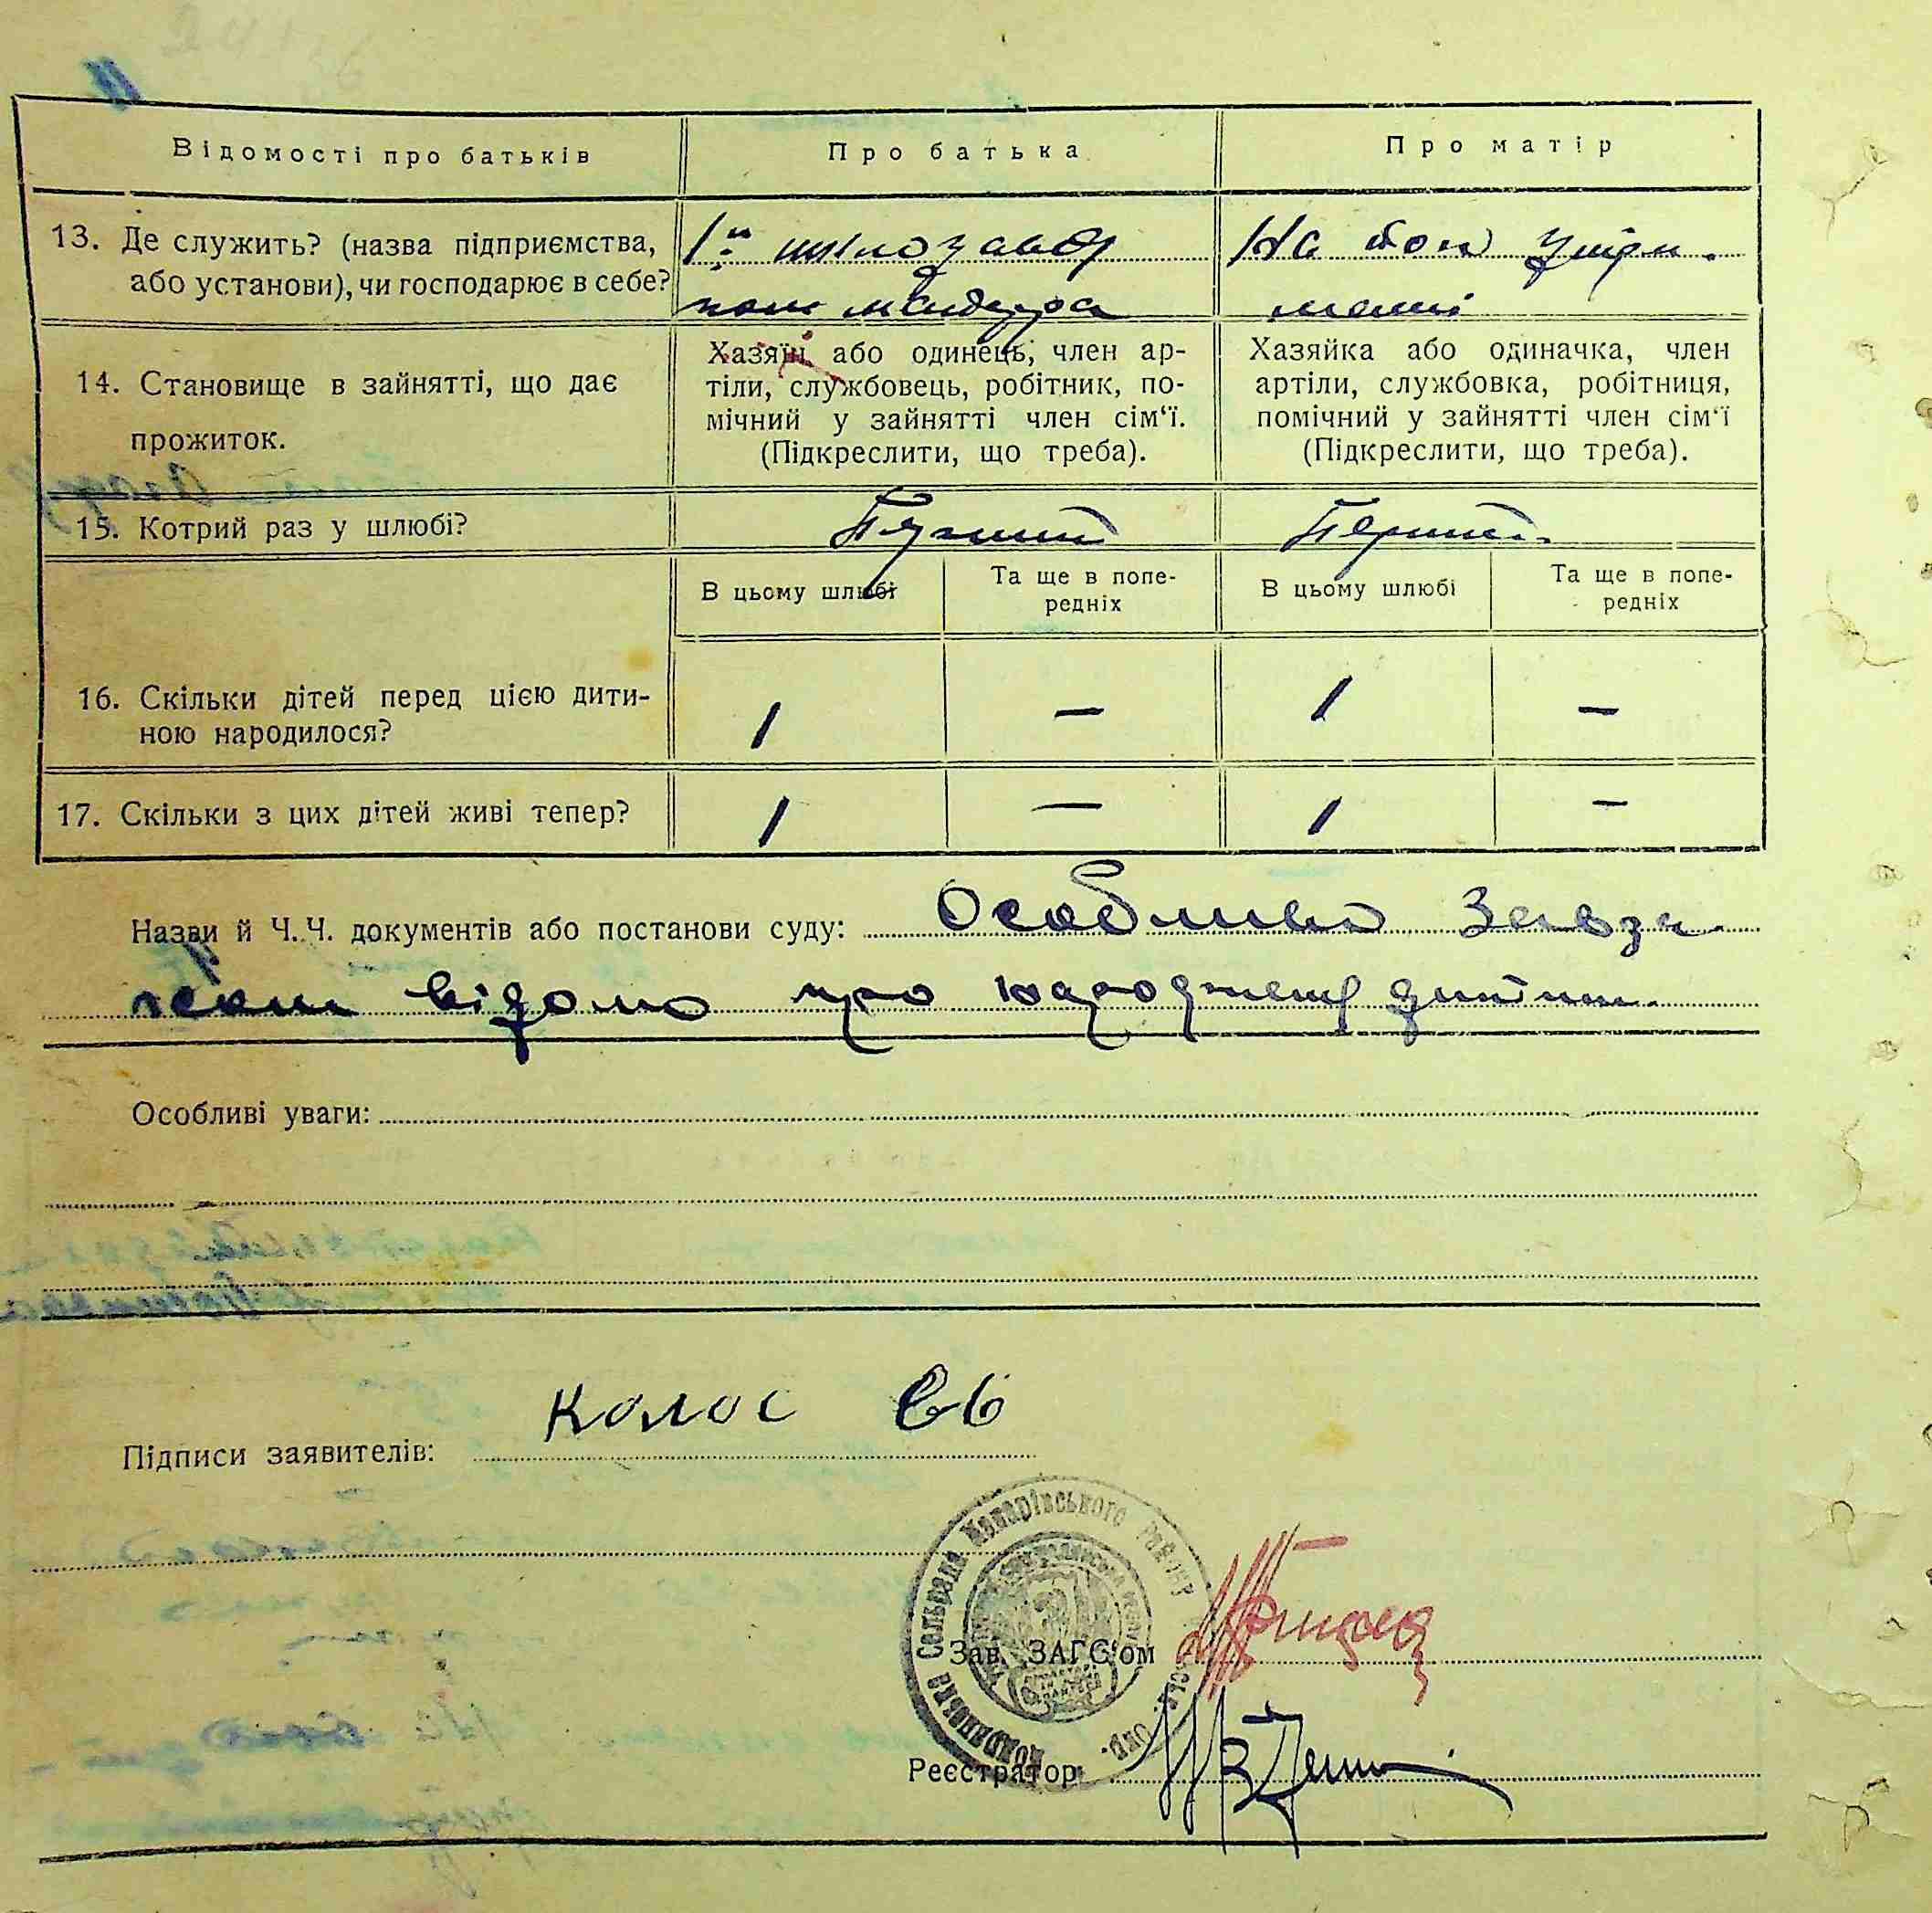 Відомості про батьків
Про батька
Про матір
13. Де служить? (назва підприємства,
або установи), чи господарює в себе?
На
14. Становище в зайнятті, що дає
прожиток.
Хазяїн або одинець, член ар-
тіли, службовець, робітник, по-
мічний у зайнятті член сім‘ї.
(Підкреслити, що треба).
Хазяйка або одиначка, член
артіли, службовка, робітниця,
помічний у зайнятті член сім‘ї
(Підкреслити, що треба).
15. Котрий раз у шлюбі?
Перший
В цьому шлюбі
Та ще в попе-
редніх
В цьому шлюбі
Та ще в попе-
редніх
16. Скільки дітей перед цією дити-
ною народилося?
1 — 1 —
17. Скільки з цих дітей живі тепер?
1 — 1 —
Назви й Ч.Ч. документів або постанови суду: Особливо
відомо про дитини.
Особливі уваги:
Підписи заявителів: Колос
Сельрада району Окр.
Зав. ЗАГС‘ом
Реєстратор